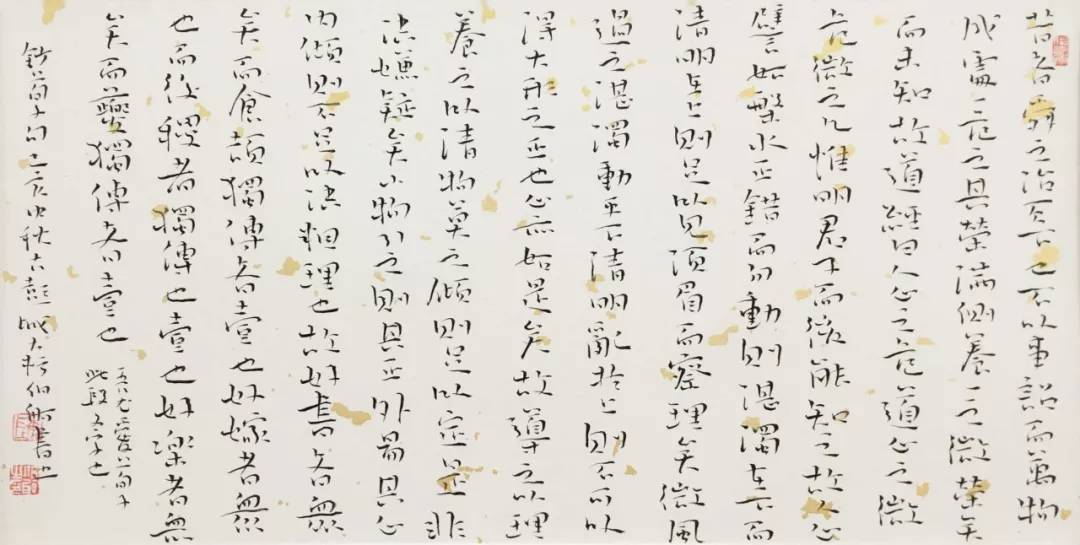 昔者舜之治天下也不以事詔而萬物
成處一危之其榮滿側養一之微榮矣
而未知故道經曰人心之危道心之微
危微之几惟明君子而後能知之故人心
譬如槃水正錯而勿動則湛濁在下而
清明在上則足以見須眉而察理矣微風
過之湛濁動乎下清明亂於上則不可以
得大形之正也心亦如是矣故導之以理
養之以清物莫之傾則足以定是非
決嫌疑矣小物引之則其正外易其心
內傾則不足以決粗理也故好書者眾
矣而倉頡獨傳者壹也好稼者眾
也而後稷者獨傳也壹也好樂者眾
矣而夔獨傳者壹也
愛荀子
此段文字也
荀子句己亥中秋古彭城書